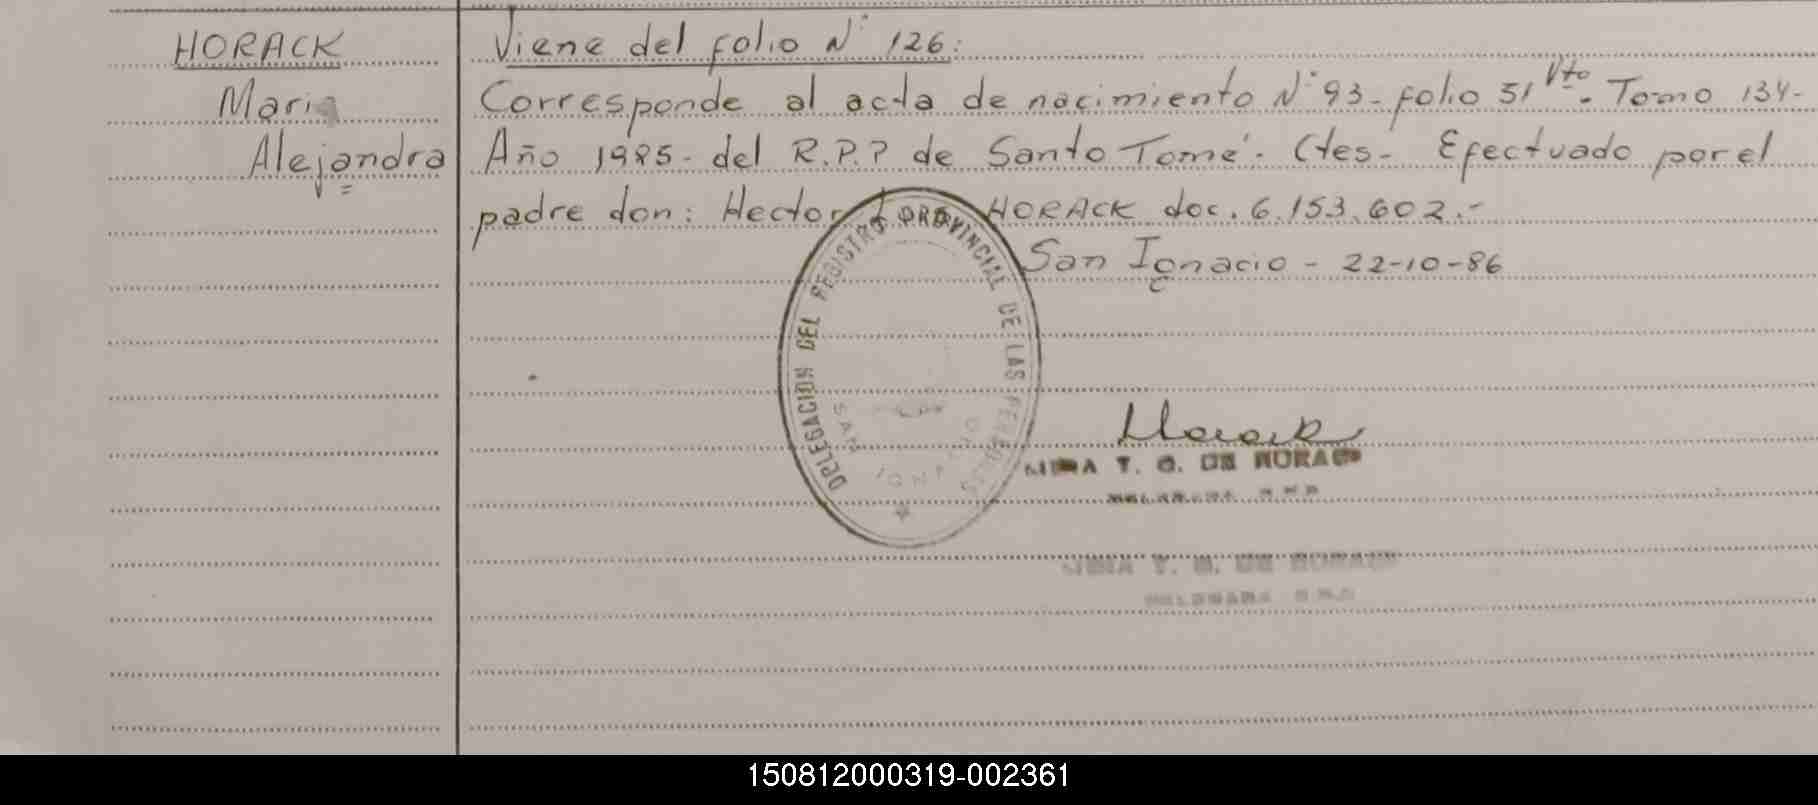 HORACK
Maria
Alejandra
Viene del folio N° 126:
Corresponde al acta de nacimiento N° 93- folio 51 Vto. Tomo 134-
Año 1985- del R.P.P de Santo Tomé- Ctes- Efectuado por el
padre don: Hector HORACK doc. 6.153.602.-
San Ignacio - 22-10-86
DELEGACION DEL REGISTRO PROVINCIAL DE LAS PERSONAS
SAN IGNACIO
Horack
T. G. DE HORACK
DELEGADA
T. G. DE HORACK
DELEGADA
150812000319-002361